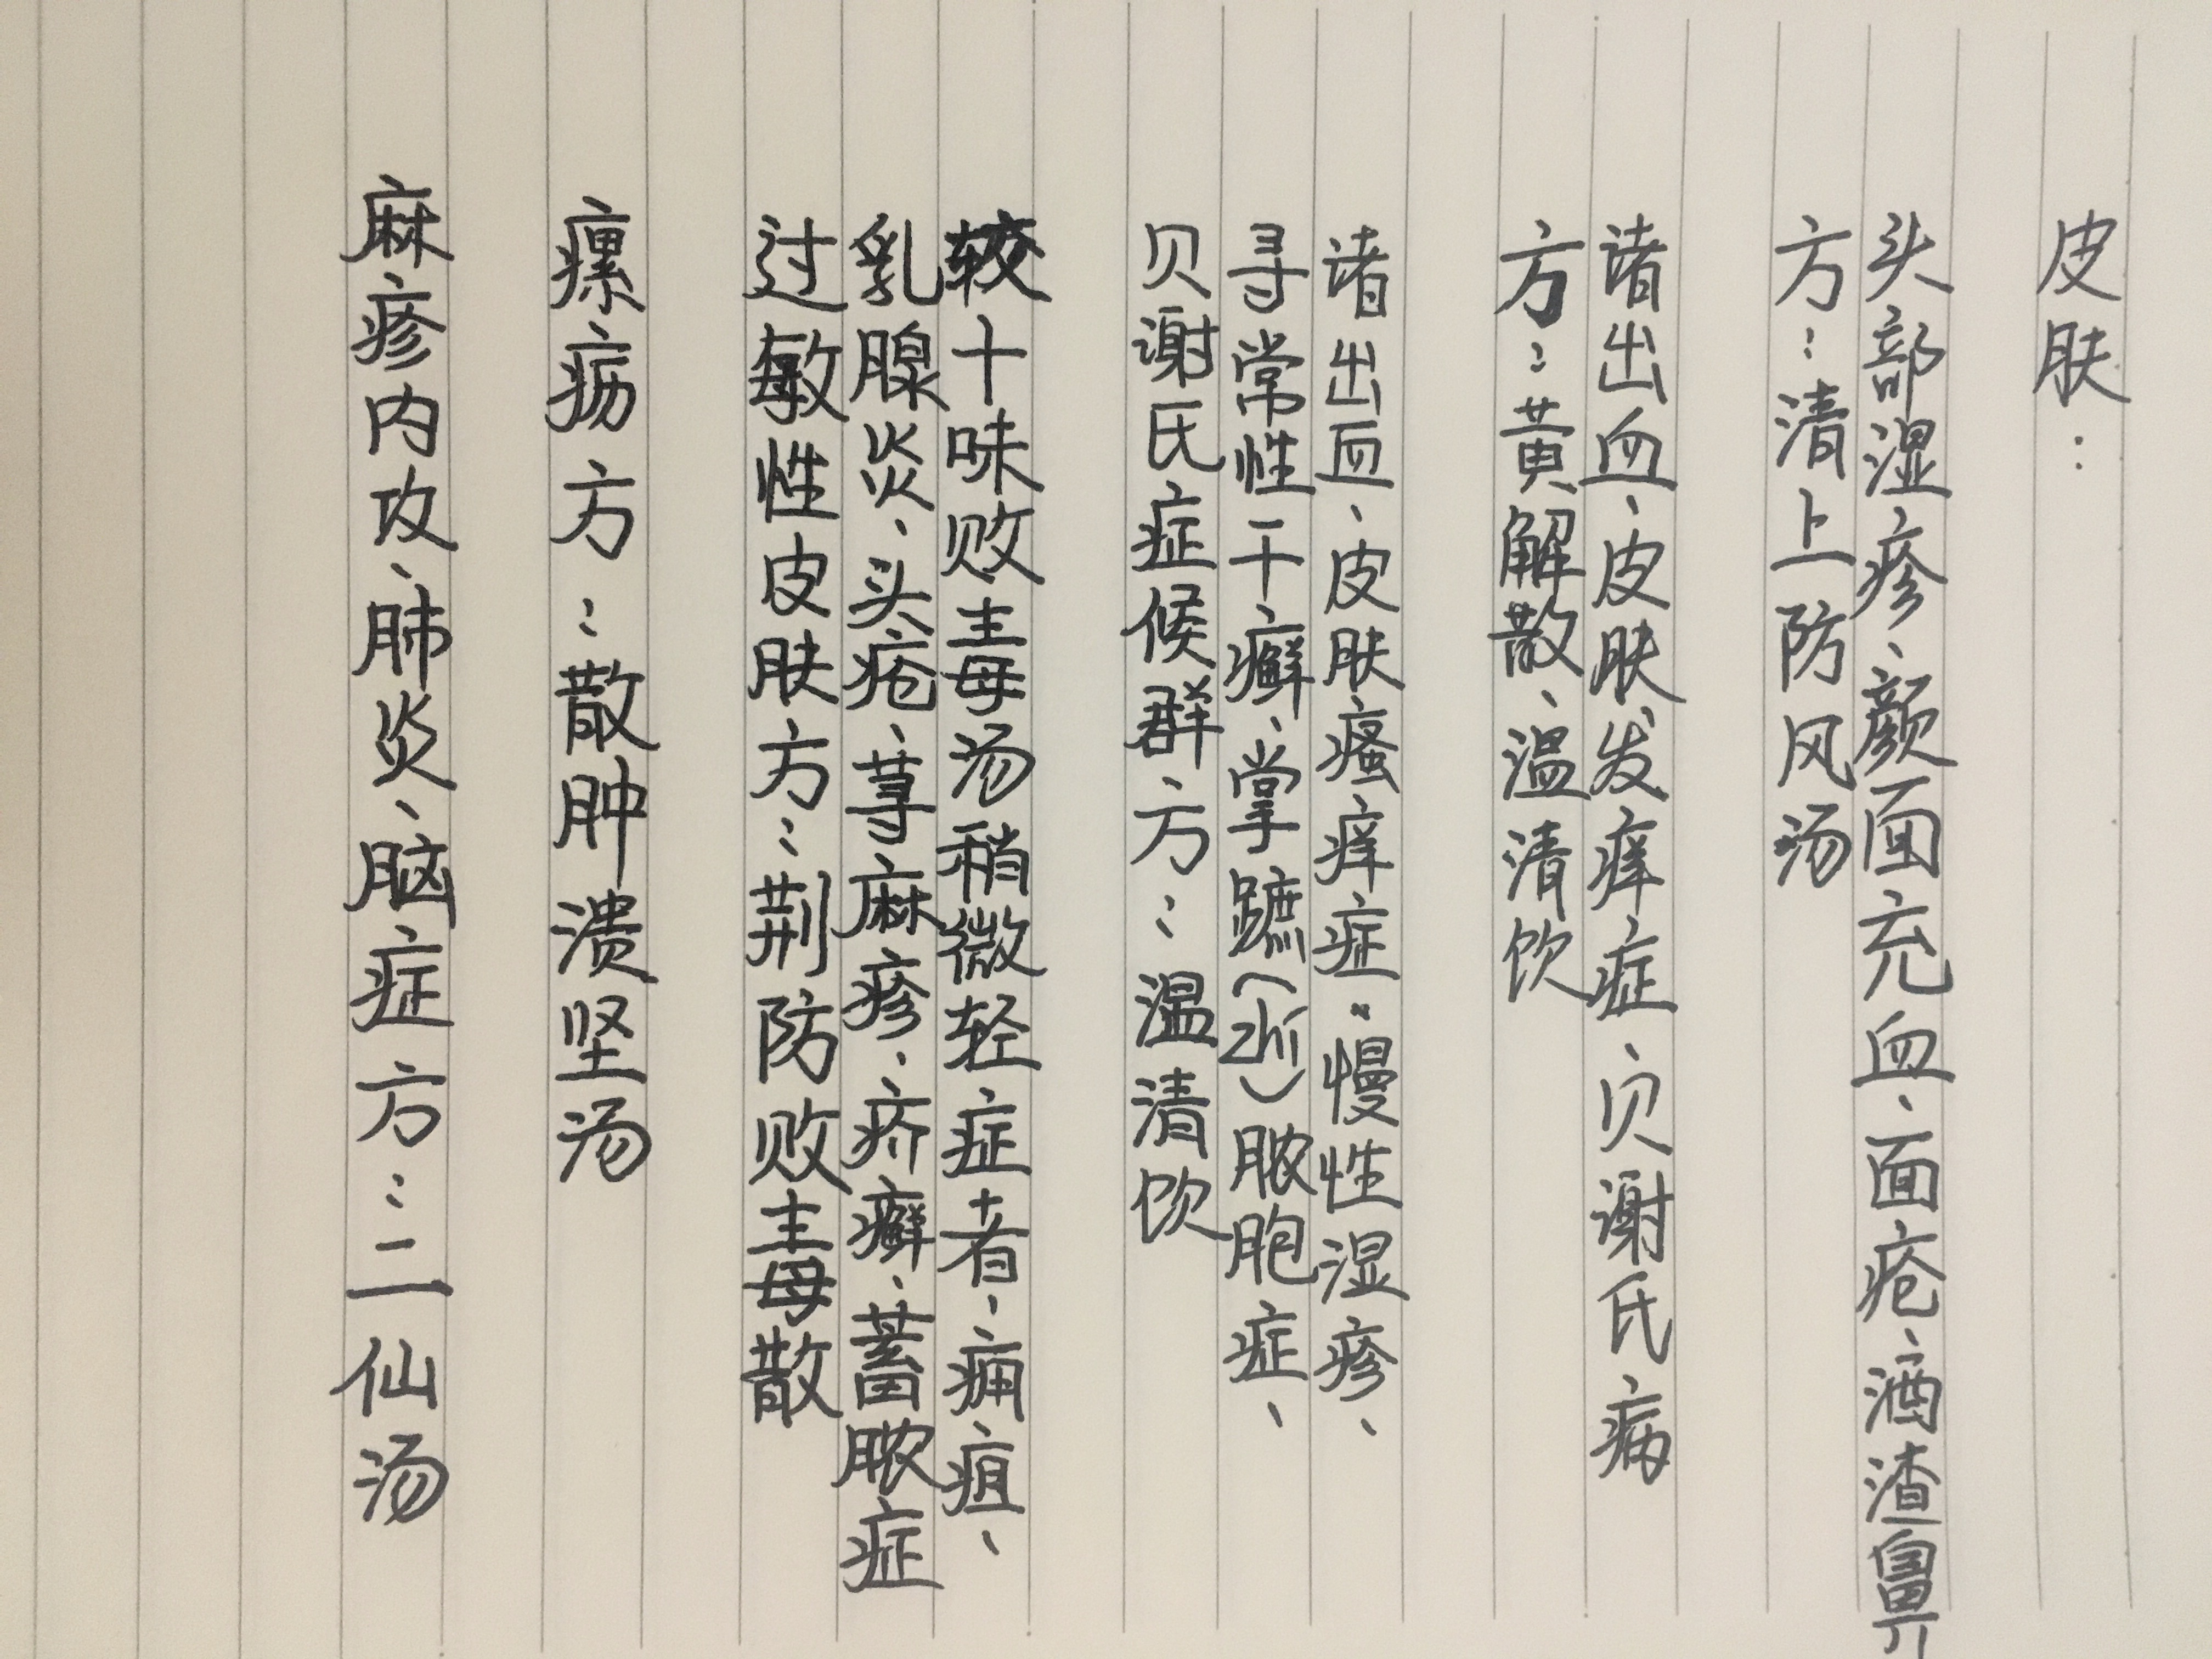 皮肤：
头部湿疹、颜面充血、面疮、酒渣鼻
方：清上防风汤
诸出血、皮肤发痒症、贝谢氏病
方：黄解散、温清饮
诸出血、皮肤瘙痒症、慢性湿疹、
寻常性干癣、掌蹠(zhí)脓胞症、
贝谢氏症候群方：温清饮
较十味败毒汤稍微轻症者，痈疽、
乳腺炎、头疮、荨麻疹、疥癣、蓄脓症
过敏性皮肤方：荆防败毒散
瘰疬方：散肿溃坚汤
麻疹内攻、肺炎、脑症方：二仙汤